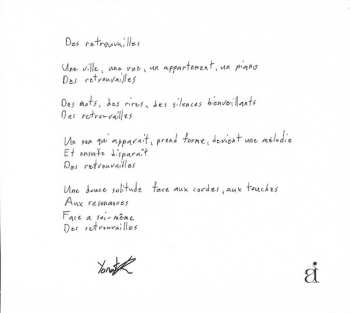 Des retrouvailles
Une ville, une rue, un appartement, un piano
Des retrouvailles
Des mots, des rires, des silences bienveillants
Des retrouvailles
Un son qui apparaît, prend forme, devient une mélodie
Et ensuite disparaît
Des retrouvailles
Une douce solitude face aux cordes, aux touches
Aux resonances
Face a soi-même
Des retrouvailles